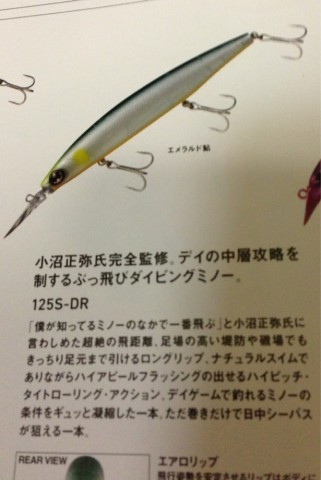 エメラルド鮎
小沼正弥氏完全監修。デイの中層攻略を
制するぶっ飛びダイビングミノー。
125S-DR
「僕が知ってるミノーのなかで一番飛ぶ」と小沼正弥氏に
言わしめた超絶の飛距離、足場の高い堤防や磯場でも
きっちり足元まで引けるロングリップ、ナチュラルスイムで
ありながらハイアピールフラッシングの出せるハイピッチ・
タイトローリング・アクション。デイゲームで釣れるミノーの
条件をギュッと凝縮した一本。ただ巻きだけで日中シーバス
が狙える一本。
REAR VIEW
エアロリップ
飛行姿勢を安定させるリップはボディに